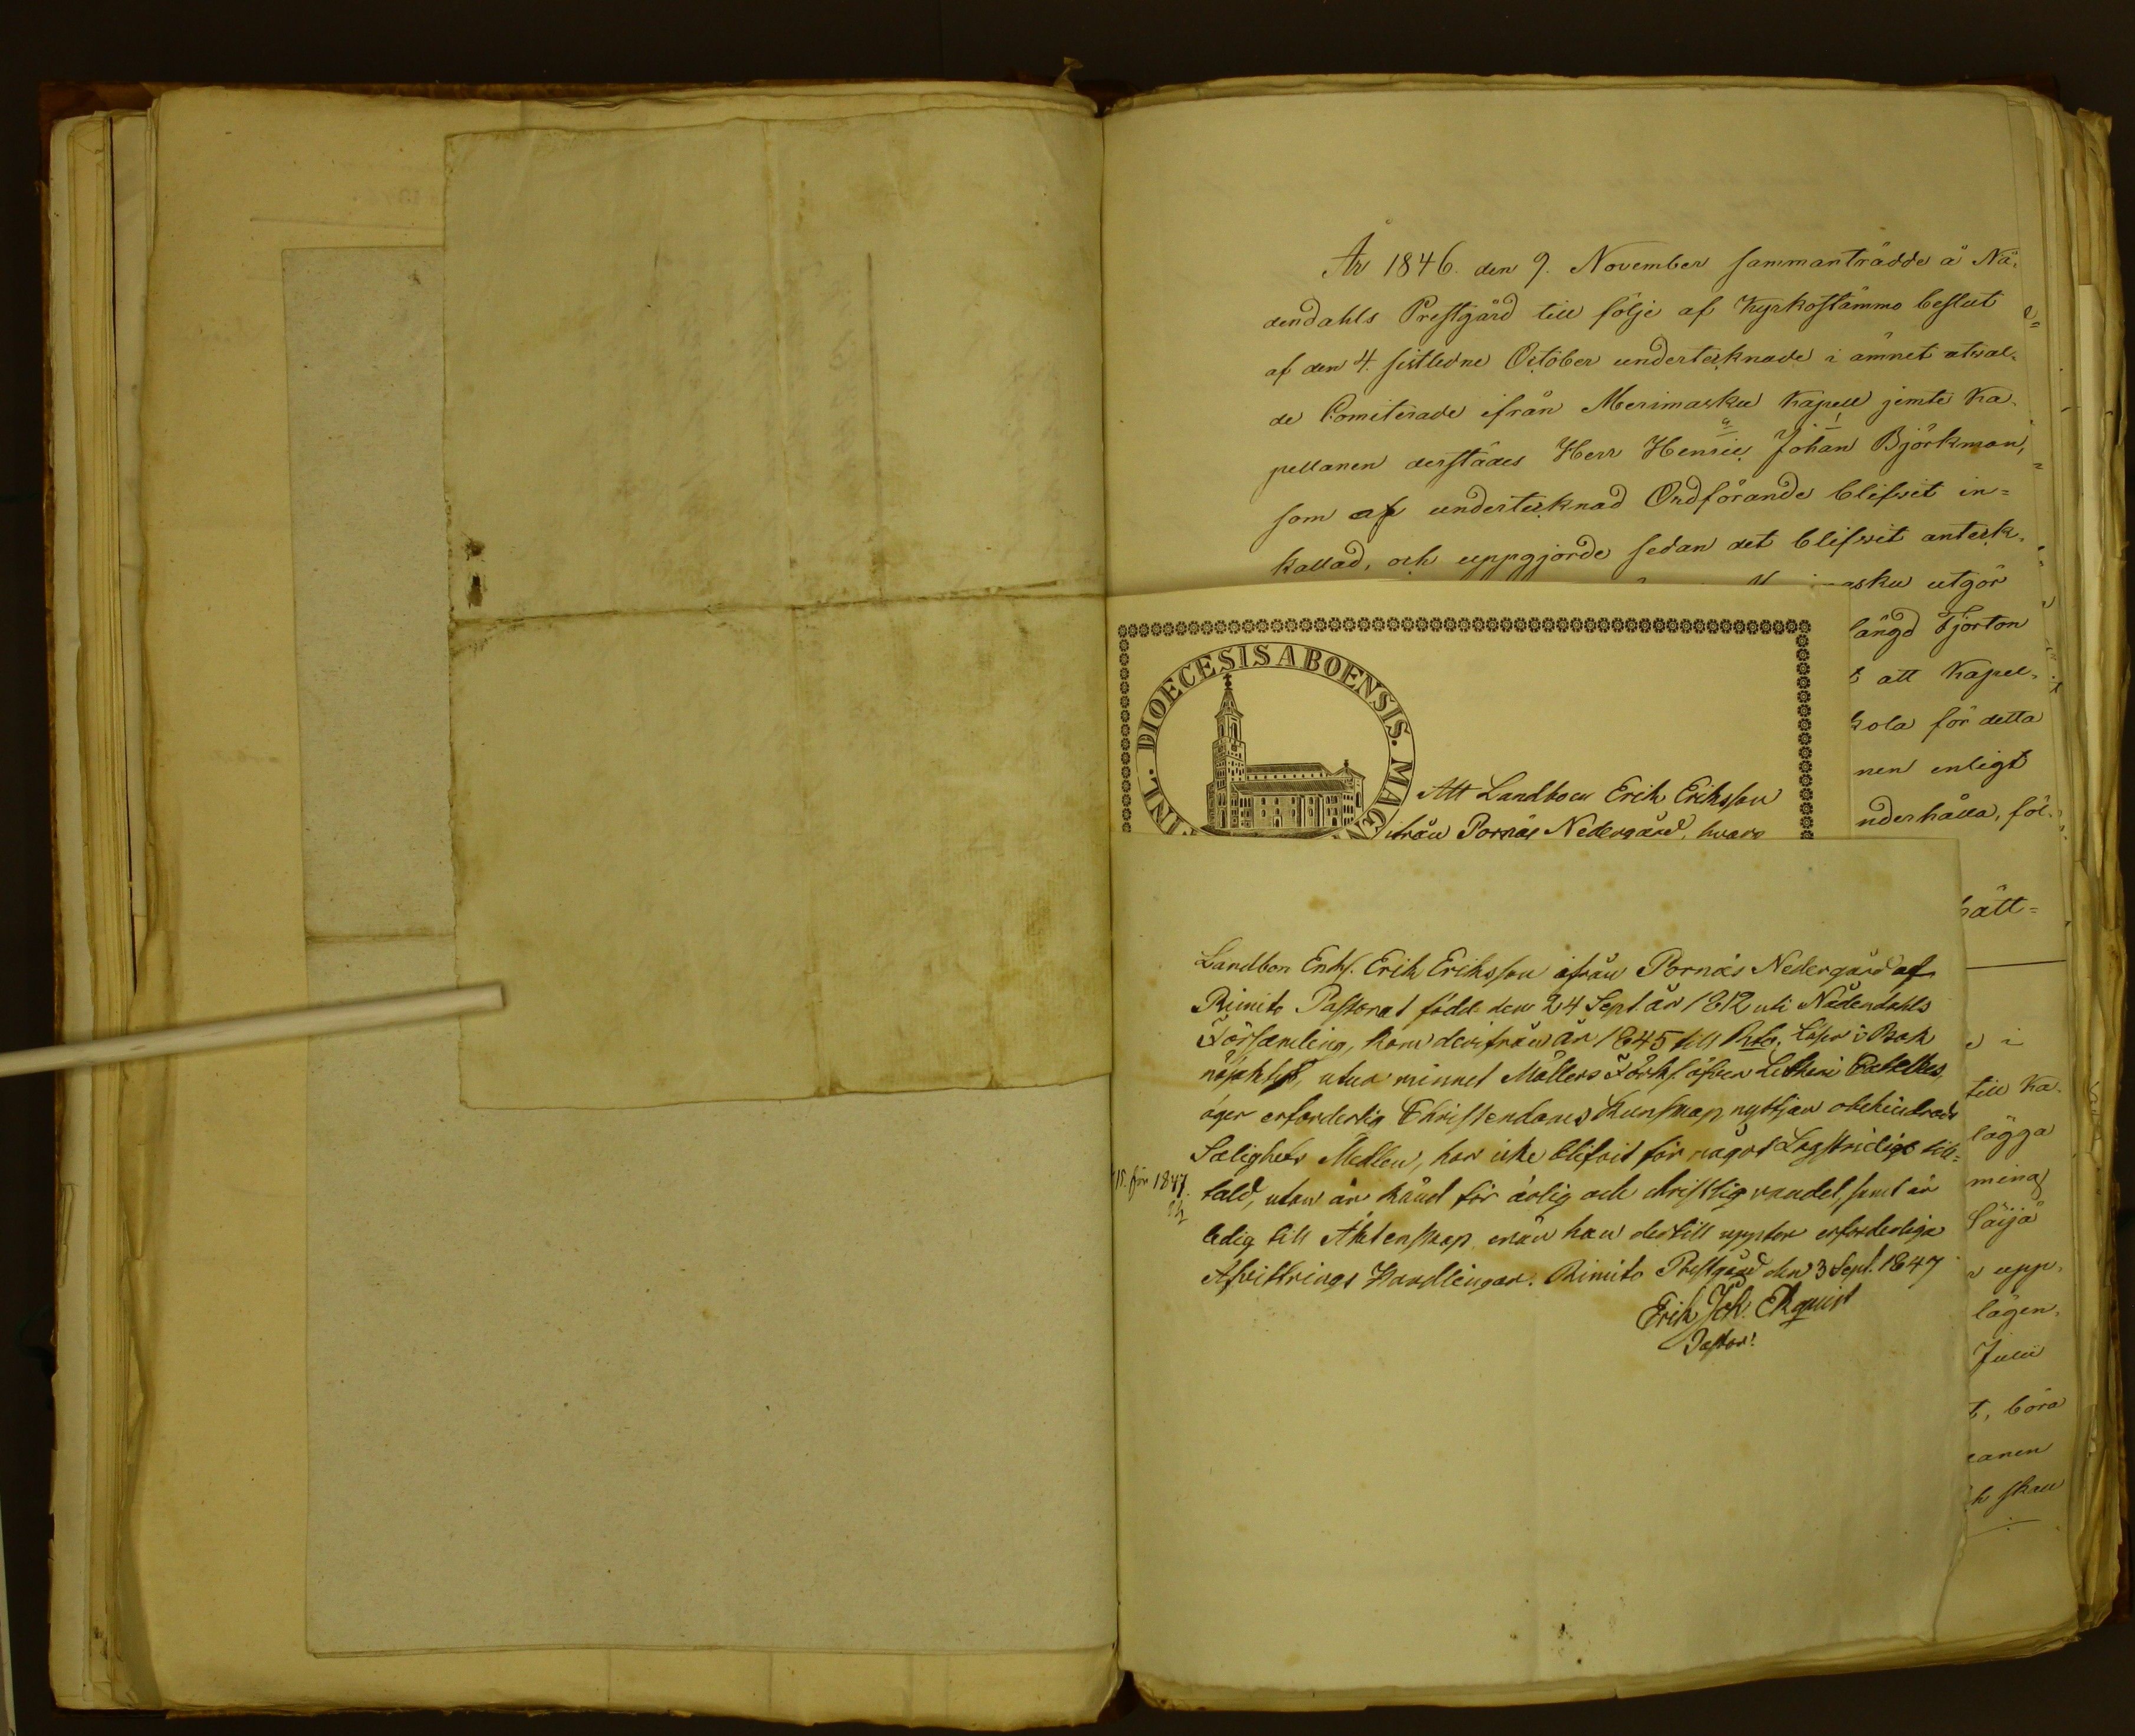 År 1846. den 9. November sammanträdde å Nå-
dendahls Prestgård till följe af Kyrkostämmo beslut
af den 4. sistledne October undertecknade i ämnet utval-
de Comiterade ifrån Merimasku Kapell jemte Ka-
pellanen derstädes Herr Henric Johan Björkman,
som af undertecknad Ordförande blifvit in=
kallad, och uppgjorde sedan det blifvit anteck-
asku utgör
längd Fjorton
att Kapel-
kola för detta
nen enligt
nderhålla, föl-
DIOECESIS ABOENSIS. MAG
INL.
Att Landbon Erik Eriksson
ifrån Pornäs Nedergård, hvars
ått=
Landbon Enkl. Erik Eriksson ifrån Pornäs Nedergård af
Rimito Pastorat född den 24 Sept. år 1812 uti Nådendahls
Församling, kom derifrån år 1845 till Rto, Läser i Bok
nöjaktigt, utur minnet Möllers Förkl. öfver Lutheri Cateches,
äger erforderlig Christendoms Kunskap nyttjar obehindradt
Salighets Medlen, har icke blifvit för något Lagstridigt till=
N. för 1847.
tald, utan är känd för ärlig och christlig vandel, samt är
ledig till Äktenskap enär han dertill uppter erforderliga
Afvittrings Handlingar. Rimito Prestgård den 3 Sept. 1847
Erik Joh. Ekquist
Pastor.
till Ka-
lägga
ming
Säijä
upp-
lägen-
Julii
t, böra
anen
h skall